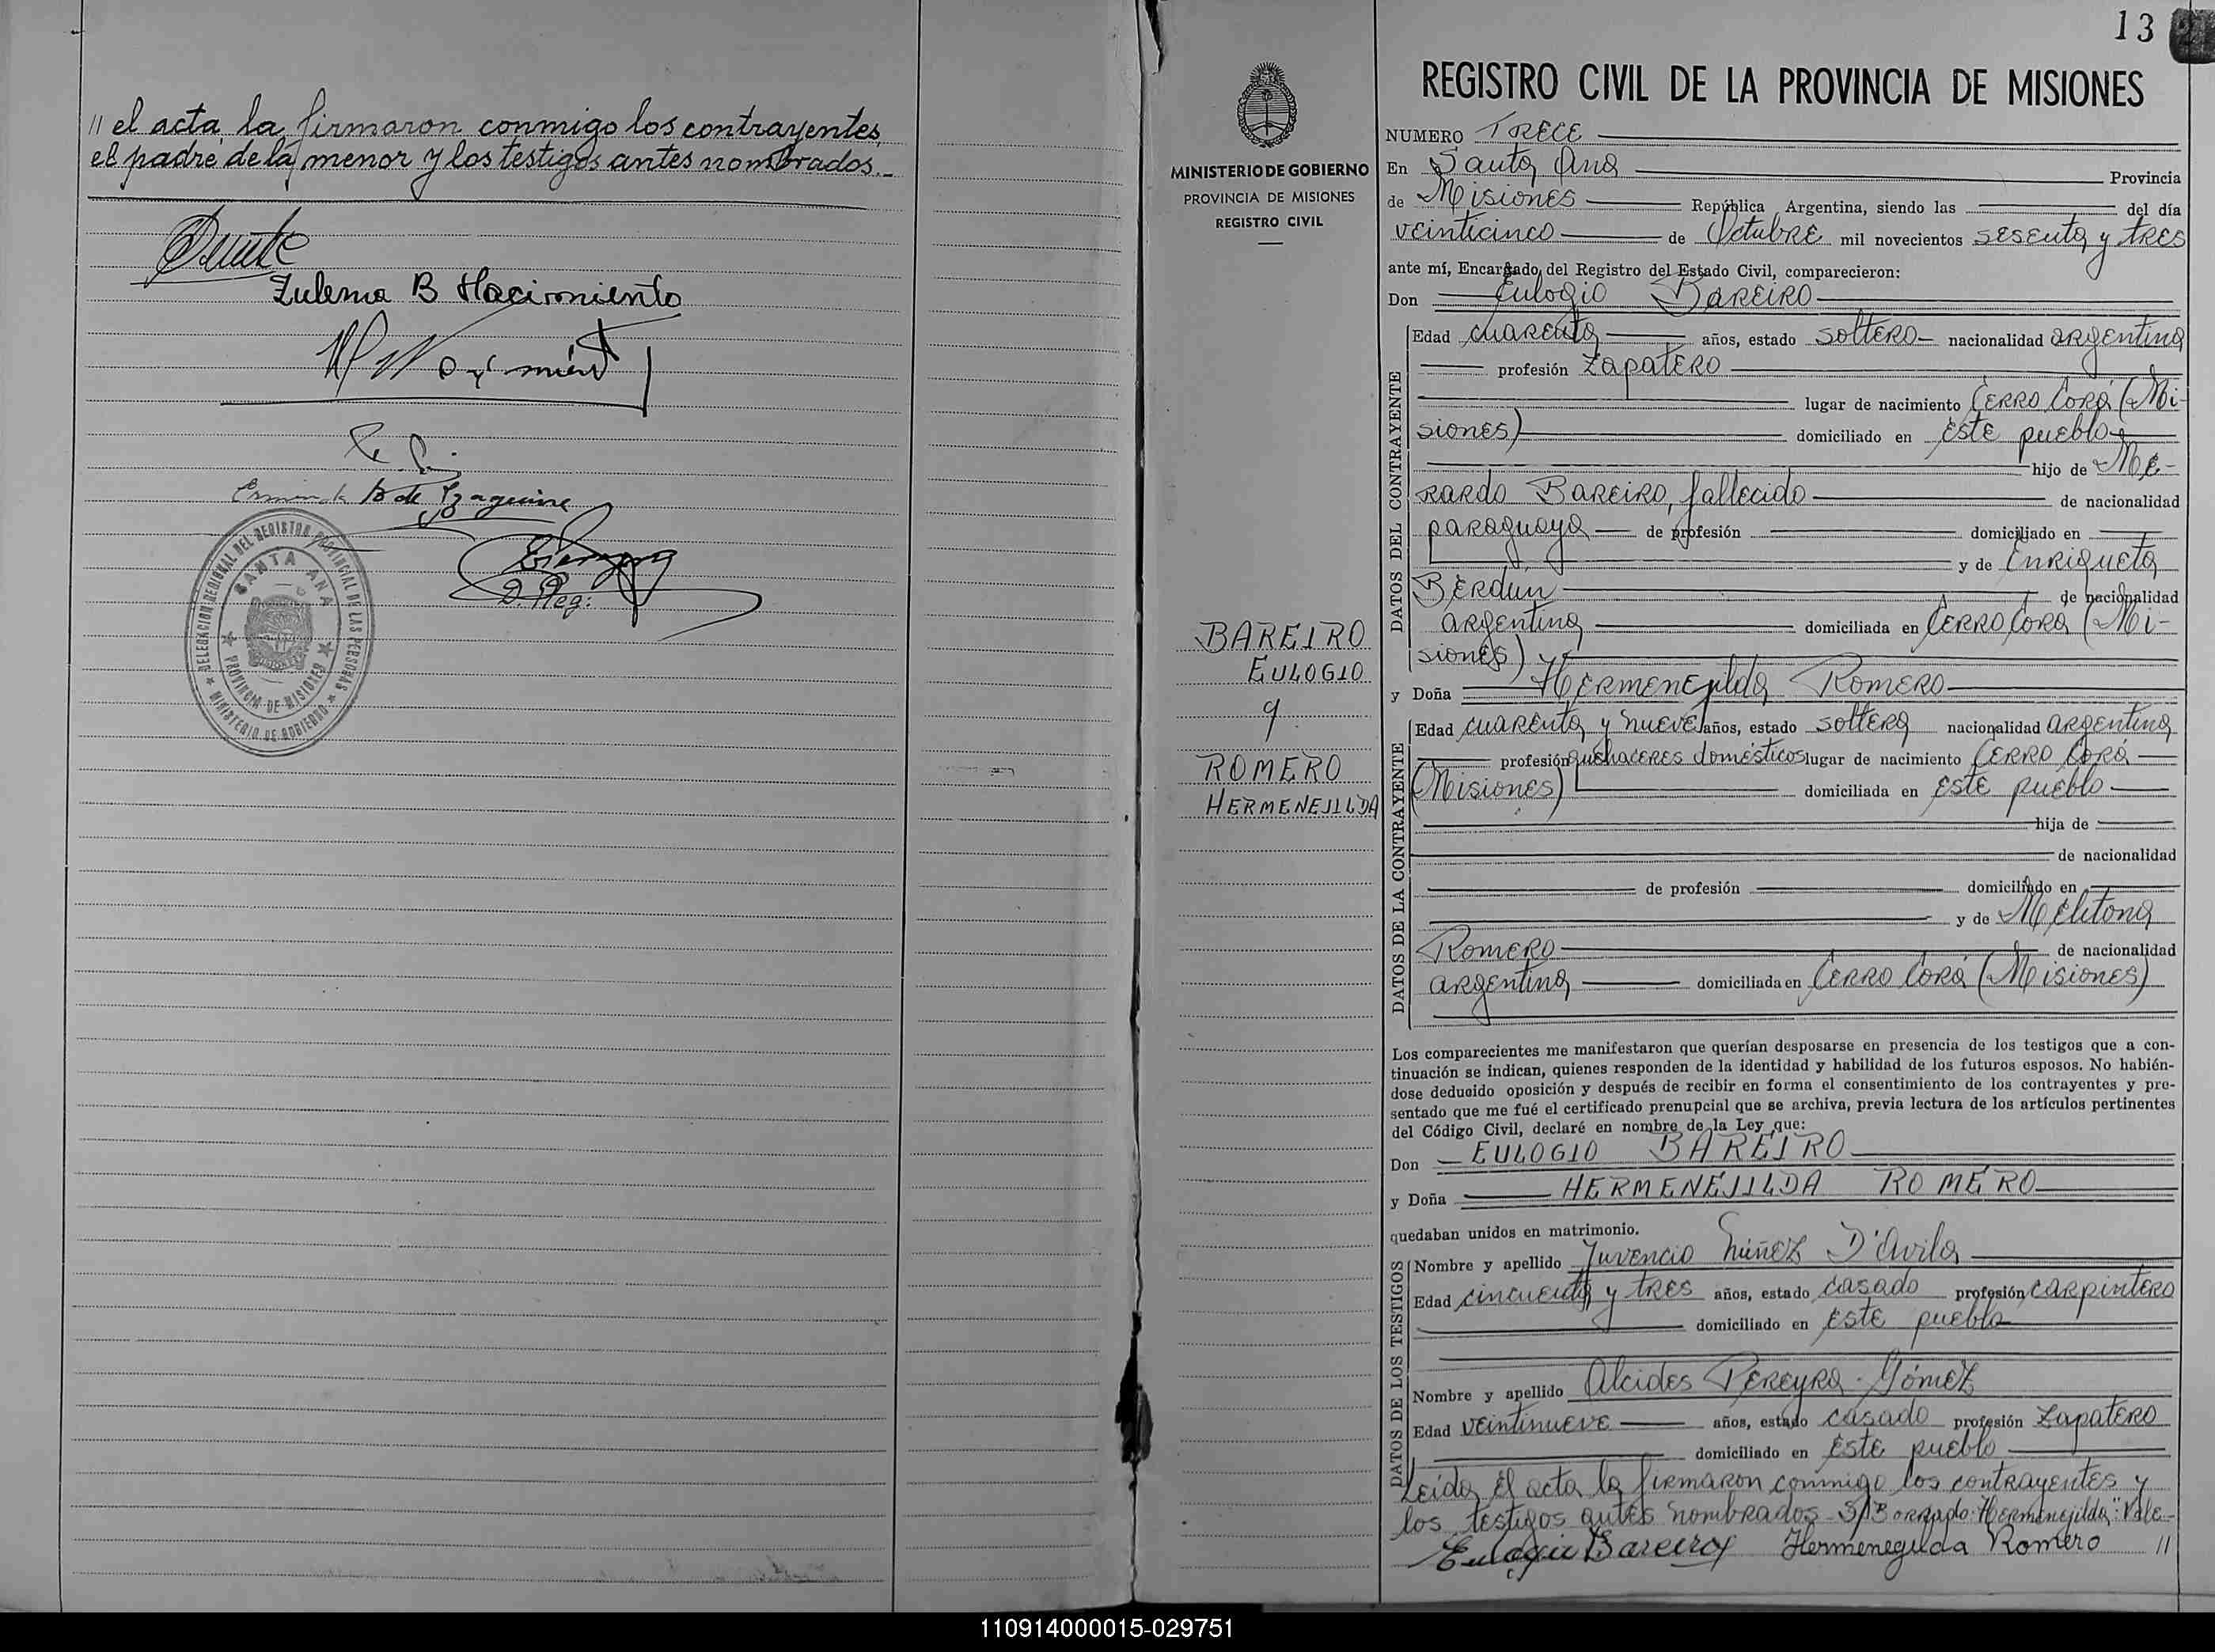 // el acta la firmaron conmigo los contrayentes,
el padre de la menor y los testigos antes nombrados.-
Zulema B Nacimiento
D. Reg:
DELEGACION REGIONAL DEL REGISTRO PROVINCIAL DE LAS PERSONAS
SANTA ANA
PROVINCIA DE MISIONES
MINISTERIO DE GOBIERNO
13
MINISTERIO DE GOBIERNO
PROVINCIA DE MISIONES
REGISTRO CIVIL
BAREIRO
EULOGIO
y
ROMERO
HERMENEJILDA
REGISTRO CIVIL DE LA PROVINCIA DE MISIONES
NUMERO TRECE
En Santa Ana Provincia
de Misiones República Argentina, siendo las del día
veinticinco de Octubre mil novecientos sesenta y tres
ante mí, Encargado del Registro del Estado Civil, comparecieron:
Don Eulogio Bareiro
DATOS DEL CONTRAYENTE
Edad cuarenta años, estado soltero nacionalidad argentina
profesión zapatero
lugar de nacimiento Cerro Corá (Mi-
siones) domiciliado en este pueblo
hijo de Me-
rardo Bareiro, fallecido de nacionalidad
paraguaya de profesión domiciliado en
y de Enriqueta
Berdun de nacionalidad
argentina domiciliada en Cerro Corá (Mi-
siones)
y Doña Hermenejilda Romero
DATOS DE LA CONTRAYENTE
Edad cuarenta y nueve años, estado soltera nacionalidad argentina
profesión quehaceres domésticos lugar de nacimiento Cerro Corá
(Misiones) domiciliada en este pueblo
hija de
de nacionalidad
de profesión domiciliado en
y de Melitona
Romero de nacionalidad
argentina domiciliada en Cerro Corá (Misiones)
Los comparecientes me manifestaron que querían desposarse en presencia de los testigos que a con-
tinuación se indican, quienes responden de la identidad y habilidad de los futuros esposos. No habién-
dose deducido oposición y después de recibir en forma el consentimiento de los contrayentes y pre-
sentado que me fué el certificado prenupcial que se archiva, previa lectura de los artículos pertinentes
del Código Civil, declaré en nombre de la Ley que:
Don EULOGIO BAREIRO
y Doña HERMENEJILDA ROMERO
quedaban unidos en matrimonio.
DATOS DE LOS TESTIGOS
Nombre y apellido Juvencio Núñez D'Avila
Edad cincuenta y tres años, estado casado profesión carpintero
domiciliado en este pueblo
Nombre y apellido Alcides Pereyra Gómez
Edad veintinueve años, estado casado profesión zapatero
domiciliado en este pueblo
Leída el acta la firmaron conmigo los contrayentes y
los testigos antes nombrados S/B orrado: Hermenejilda: Vale-
Eulogio Bareiro Hermenegilda Romero //
110914000015-029751